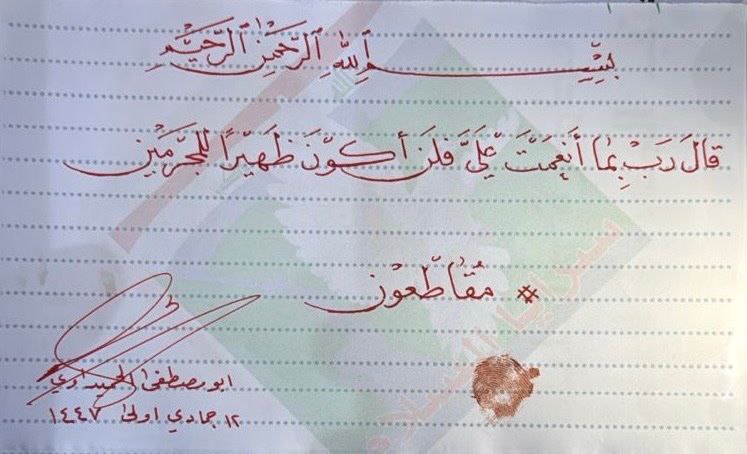 بسم الله الرحمن الرحيم
قال رب بما أنعمت عليَّ فلن أكون ظهيرًا للمجرمين
# مقاطعون
ابو مصطفى الحميداوي
١٢ جمادي اولى ١٤٤٧
سرايا السلام